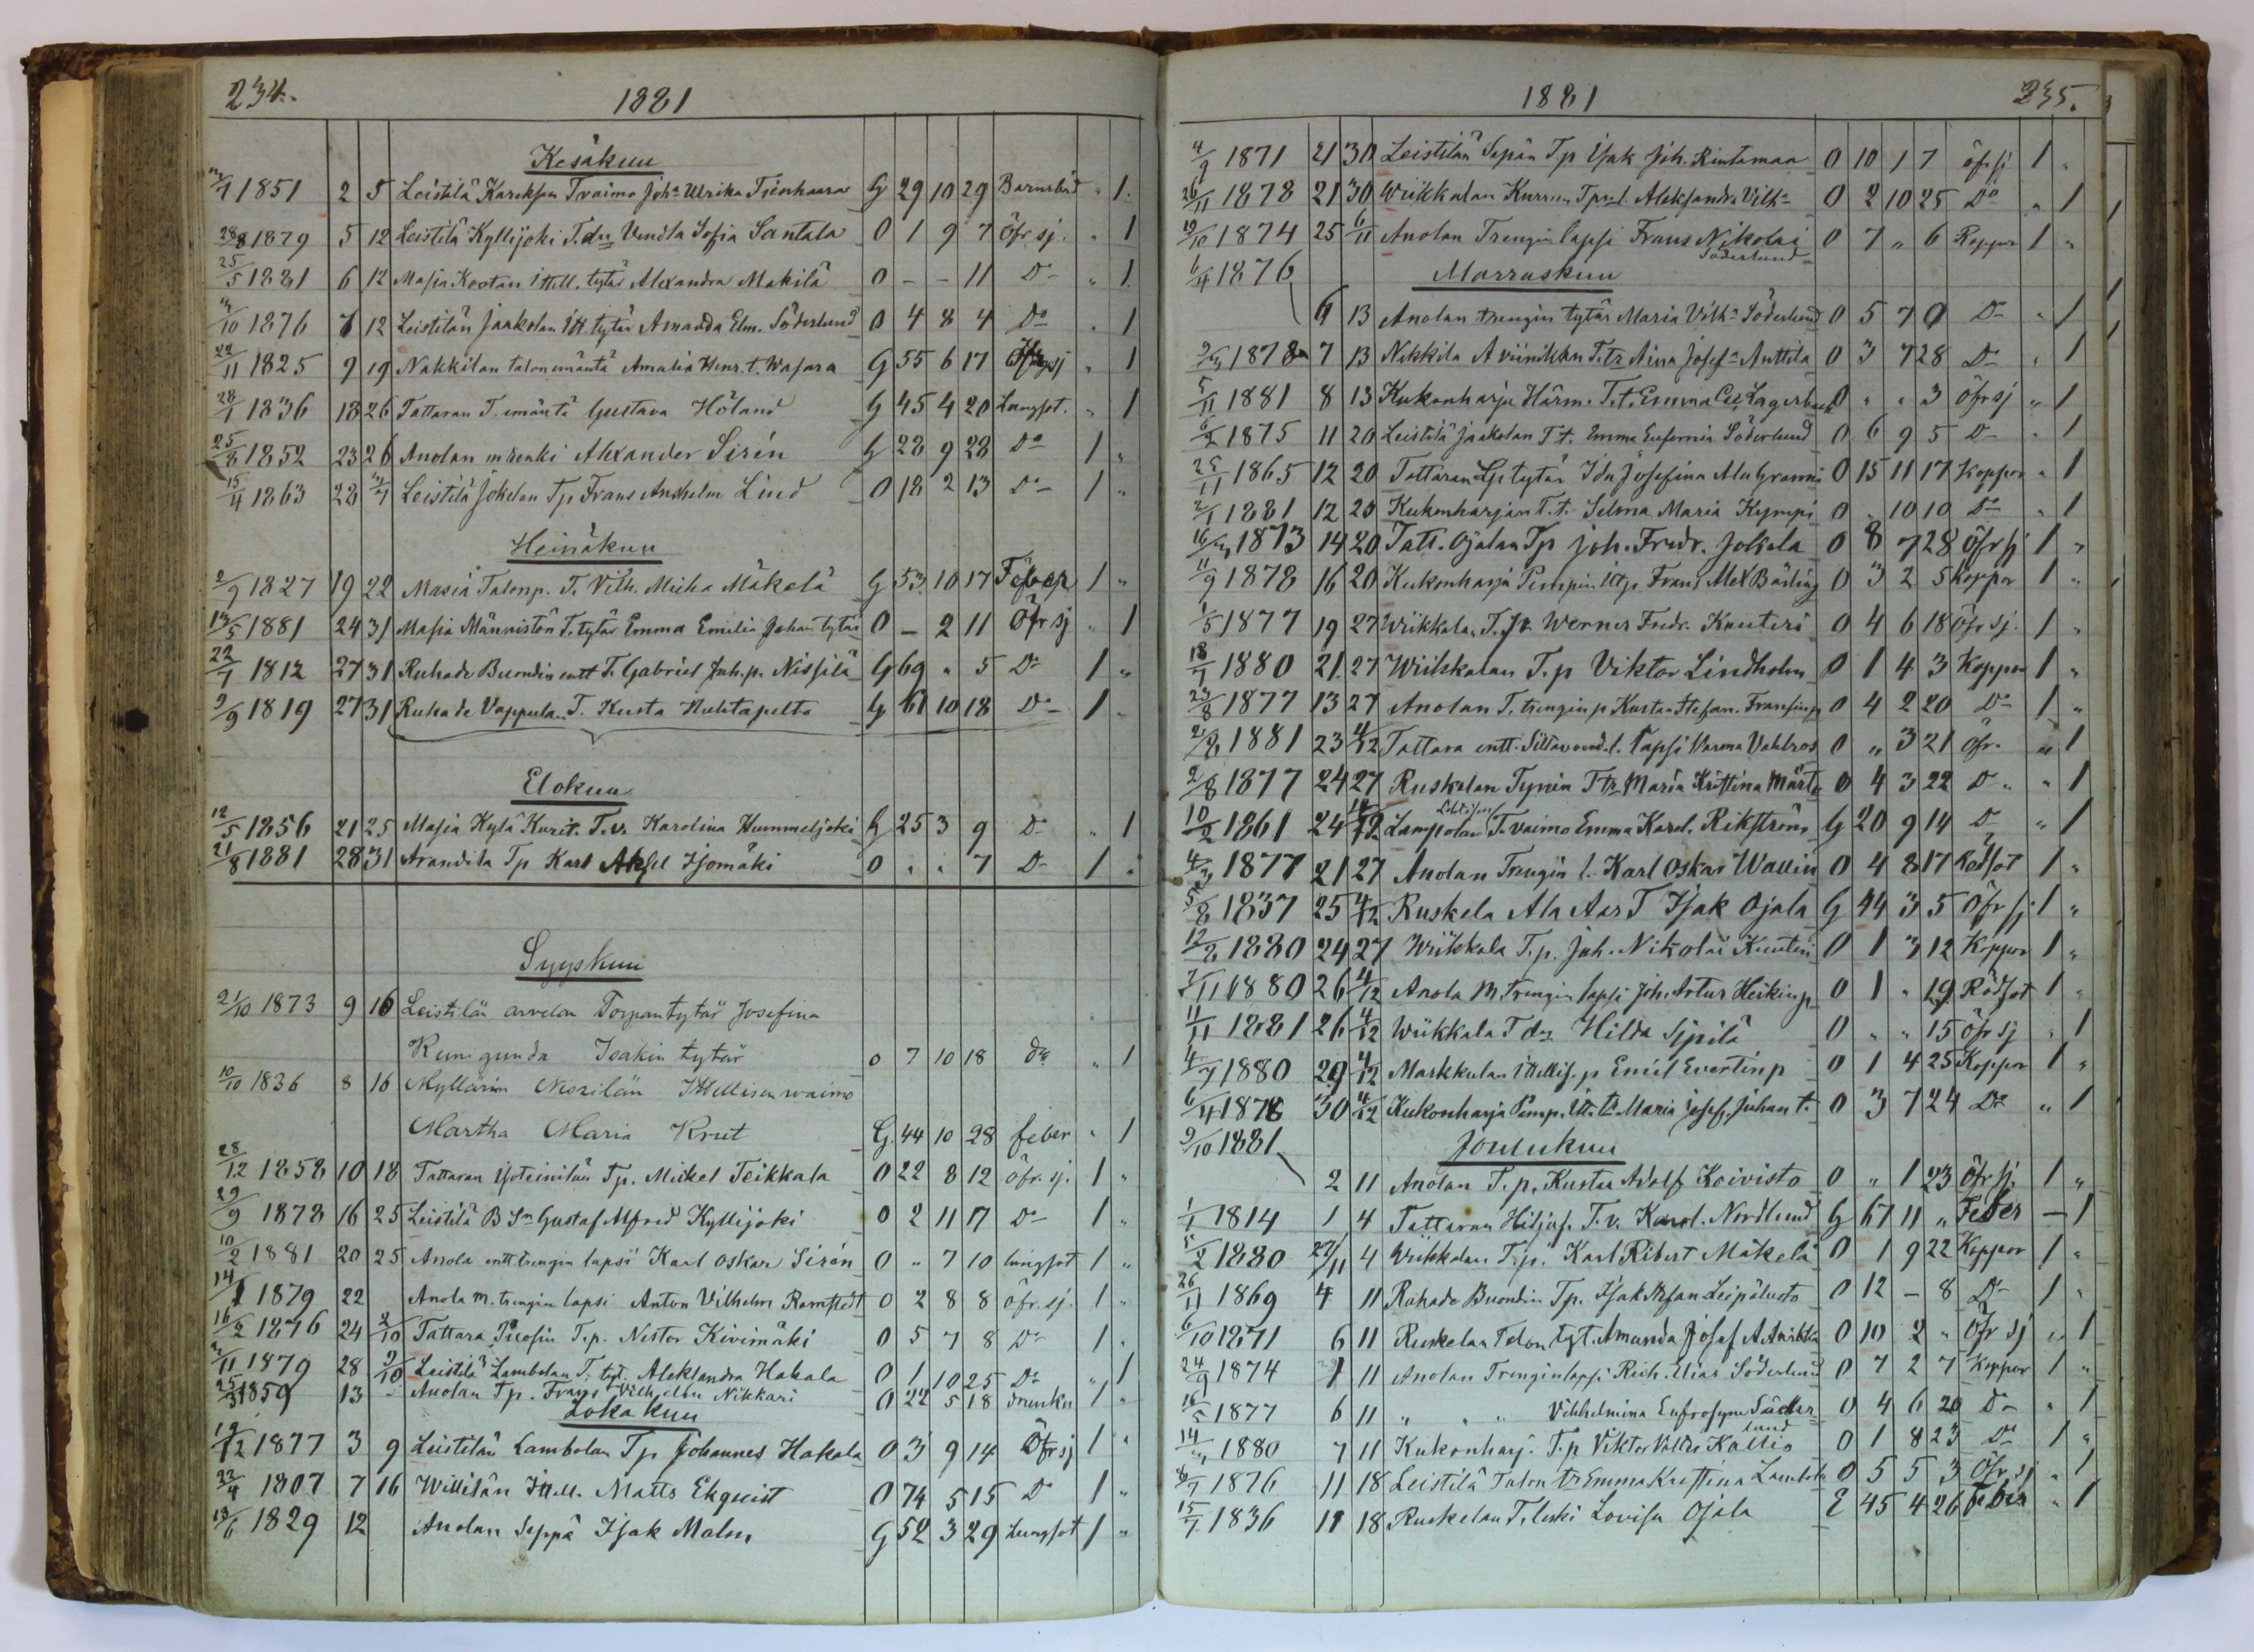 234.
1881
Kesäkuu
1851 2 5 Leistilä Tvaimo Joh:a Ulrika Tienhaara G 29 10 29 Barnsbörd " 1
28/8 1879 5 12 Leistilä Kyllijoki T.dr Vendla Sofia Santala O 1 9 7 Öfr sj. " 1
25/5 1881 6 12 Masia Kootan Ittell. tytär Alexandra Makilä O - - 11 Do " 1
1876 7 12 Leistilän Jaakolan Itt. tytär Amanda Elm. Söderlund O 4 8 4 Do " 1
22/11 1825 9 19 Nakkilan talon emäntä Amalia Henr. t. Wafara G 55 6 17 " 1
28/1 1836 18 26 Tattaran T. emäntä Gustava Höland G 45 4 20 Lungsot. " 1
25/8 1852 23 26 Anolan mrenki Alexander Sirén G 28 9 28 Do 1 "
15/4 1863 28 Leistilä Jokelan Tp Frans Anshelm Lind O 18 2 13 Do 1 "
Heinäkuu
2/9 1827 19 22 Masia Talonp. T. Vilh. Mäkelä G 53 10 17 Feber 1 "
13/5 1881 24 31 Masia Männistön T. tytär Emma Emilia Johan tytär O - 2 11 Öfr sj " 1
22/7 1812 27 31 Ruhade Buondin entt T. Gabriel Juh. p. Nissilä G 69 " 5 Do 1 "
9/9 1819 27 31 Ruhade Vappulan T. Kusta Huhtapelto G 61 10 18 Do 1 "
Elokuu
12/5 1856 21 25 Masia Kylä T. v. Karolina Hummeljoki G 25 3 9 Do " 1
21/8 1881 28 31 Arandila Tp Karl Aksel Isomäki O " " 7 Do 1 "
Syyskuu
21/10 1873 9 16 Leistilän arvelan Torpan tytär Josefina
Kunigunda Isakin tytär o 7 10 18 do " 1
10/10 1836 8 16 Myllärin Nissilän Ittellisen waimo
Martha Maria Krut G. 44 10 28 feber " 1
28/12 1858 10 18 Tattaran Tp. Mickel Teikkala O 22 8 12 öfr. sj. 1 "
29/9 1878 16 25 Leistilä B Sn Gustaf Alfred Kyllijoki O 2 11 17 Do 1 "
10/2 1881 20 25 Anola entt. trengin lapsi Karl Oskar Sirén O " 7 10 lungsot 1 "
14/1 1879 22 Anola m. trengin lapsi Anton Vilhelm Ramstedt O 2 8 8 öfr. sj. 1 "
16/2 1876 24 2/10 Tattara T.p. Nestor Kivimäki O 5 7 8 Do 1 "
1879 28 9/10 Leistilä Lambolan T. tyt. Aleksandra Hakala O 1 10 25 Do " 1
1859 13 " Anolan Tp. Frans Vilhelm Nikkari O 22 5 18 drunkn 1 "
Lokakuu
1877 3 9 Leistilän Lambolan Tp Johannes Hakala O 3 9 14 Öfr sj 1 "
22/4 1807 7 16 Willilän Ittell. Matts Ekqvist O 74 5 15 Do 1 "
13/6 1829 12 Anolan Seppä Isak Malm G 52 3 29 Lungsot 1 "
1881
235.
4/9 1871 21 30 Leistilän Sepän T.p Isak Joh. Rintamaa O 10 1 7 öfr sj 1 "
26/11 1878 21 30 Wiikkalan Aleksandra Vilh:a O 2 10 25 Do " 1
19/10 1874 25 6/11 Anolan Trengin lapsi Frans Nikolai O 7 " 6 Koppor 1 "
Söderlund
6/4 1876 Marraskuu
6 13 Anolan trengin tytär Maria Vilh:a Söderlund O 5 7 0 Do " 1
1878 7 13 Nakkila T.tr Aina Josef:a Anttila O 3 7 28 Do " 1
5/11 1881 8 13 Kukonharja Härm. T.t. Emma Lagerback O " " 3 Öfr sj " 1
6/2 1875 11 20 Leistilä Jaakolan T.t. Emma Eufemia Söderlund O 6 9 5 Do " 1
25/11 1865 12 20 Tattaran tytär Ida Josefina O 15 11 17 Koppor " 1
2/1 1881 12 20 Kukonharjan T.t. Selma Maria Kympi O " 10 10 Do " 1
1873 14 20 Tatt. Ojalan Tp Joh. Fredr. Jokela O 8 7 28 Öfr sj 1 "
11/9 1878 16 20 Kukonharja Frans Alex Bärling O 3 2 5 Koppor 1 "
1/5 1877 19 27 Wiikkalan T. Werner Fredr. Kuuteri O 4 6 18 Öfr sj. 1 "
18/7 1880 21 27 Wiikkalan T.p Viktor Lindholm O 1 4 3 Koppor 1 "
23/8 1877 13 27 Anolan T. trengin p Kustaa Stefan. Fransinp O 4 2 20 Do 1 "
2/8 1881 23 4/12 Tattara entt. lapsi Varma Vahlros O " 3 21 Öfr. " 1
2/8 1877 24 27 Ruskalan Tynin T tr Maria Kristina O 4 3 22 Do " 1
10/2 1861 24 Lampolan T. vaimo Emma Karol. Rikström G 20 9 14 Do " 1
1877 21 27 Anolan Trengin l. Karl Oskar Wallin O 4 8 17 Rödsot 1 "
5/8 1837 25 4/12 Ruskela Ala T Isak Ojala G 44 3 5 Öfr sj 1 "
12/8 1880 24 27 Wiikkala T.p. Joh. Nikolai Kuuteri O 1 3 12 Koppor 1 "
7/11 1880 26 4/12 Anola m. trengin lapsi Joh. Artur Heikinp O 1 " 19 Rödsot 1 "
11/11 1881 26 4/12 Wiikkala T dr Hilda Sipilä O " " 15 öfr sj " 1
4/7 1880 29 4/12 Markkulan Ittellis. p Emil Evertinp O 1 4 25 Koppor 1 "
6/4 1878 30 4/12 Kukonharja Pimp. Itt. tr Maria Josef. Juhan t. O 3 7 24 Do " 1
9/10 1881 Joulukuu
2 11 Anolan T.p. Kustaa Adolf Koivisto O " 1 23 Öfr sj. 1 "
1/1 1814 1 4 Tattaran T.v. Karol. Nordlund G 67 11 " Feber - 1
5/2 1880 27/11 4 Wiikkalan T.p. Karl Robert Mäkelä O 1 9 22 Koppor 1 "
26/11 1869 4 11 Ruhade Buondin Tp. Isak Leipäluoto O 12 - 8 Do 1 "
6/10 1871 6 11 Ruskelan Talon tyt. Amanda Josef. O 10 2 " Öfr sj " 1
24/9 1874 1 11 Anolan Trengin lapsi Rich. Elias Söderlund O 7 2 7 Koppor 1 "
16/5 1877 6 11 " " " Vilhelmina Eufrosyne Söder O 4 6 20 Do " 1
lund
1880 7 11 Kukonharj. T.p Viktor Kallio O 1 8 23 Do 1 "
1876 11 18 Leistilä Talon tr Emma Kristina Lambola O 5 5 3 Öfr. sj " 1
15/7 1836 11 18 Ruskelan T. leski Lovisa Ojala E 45 4 26 Feber " 1